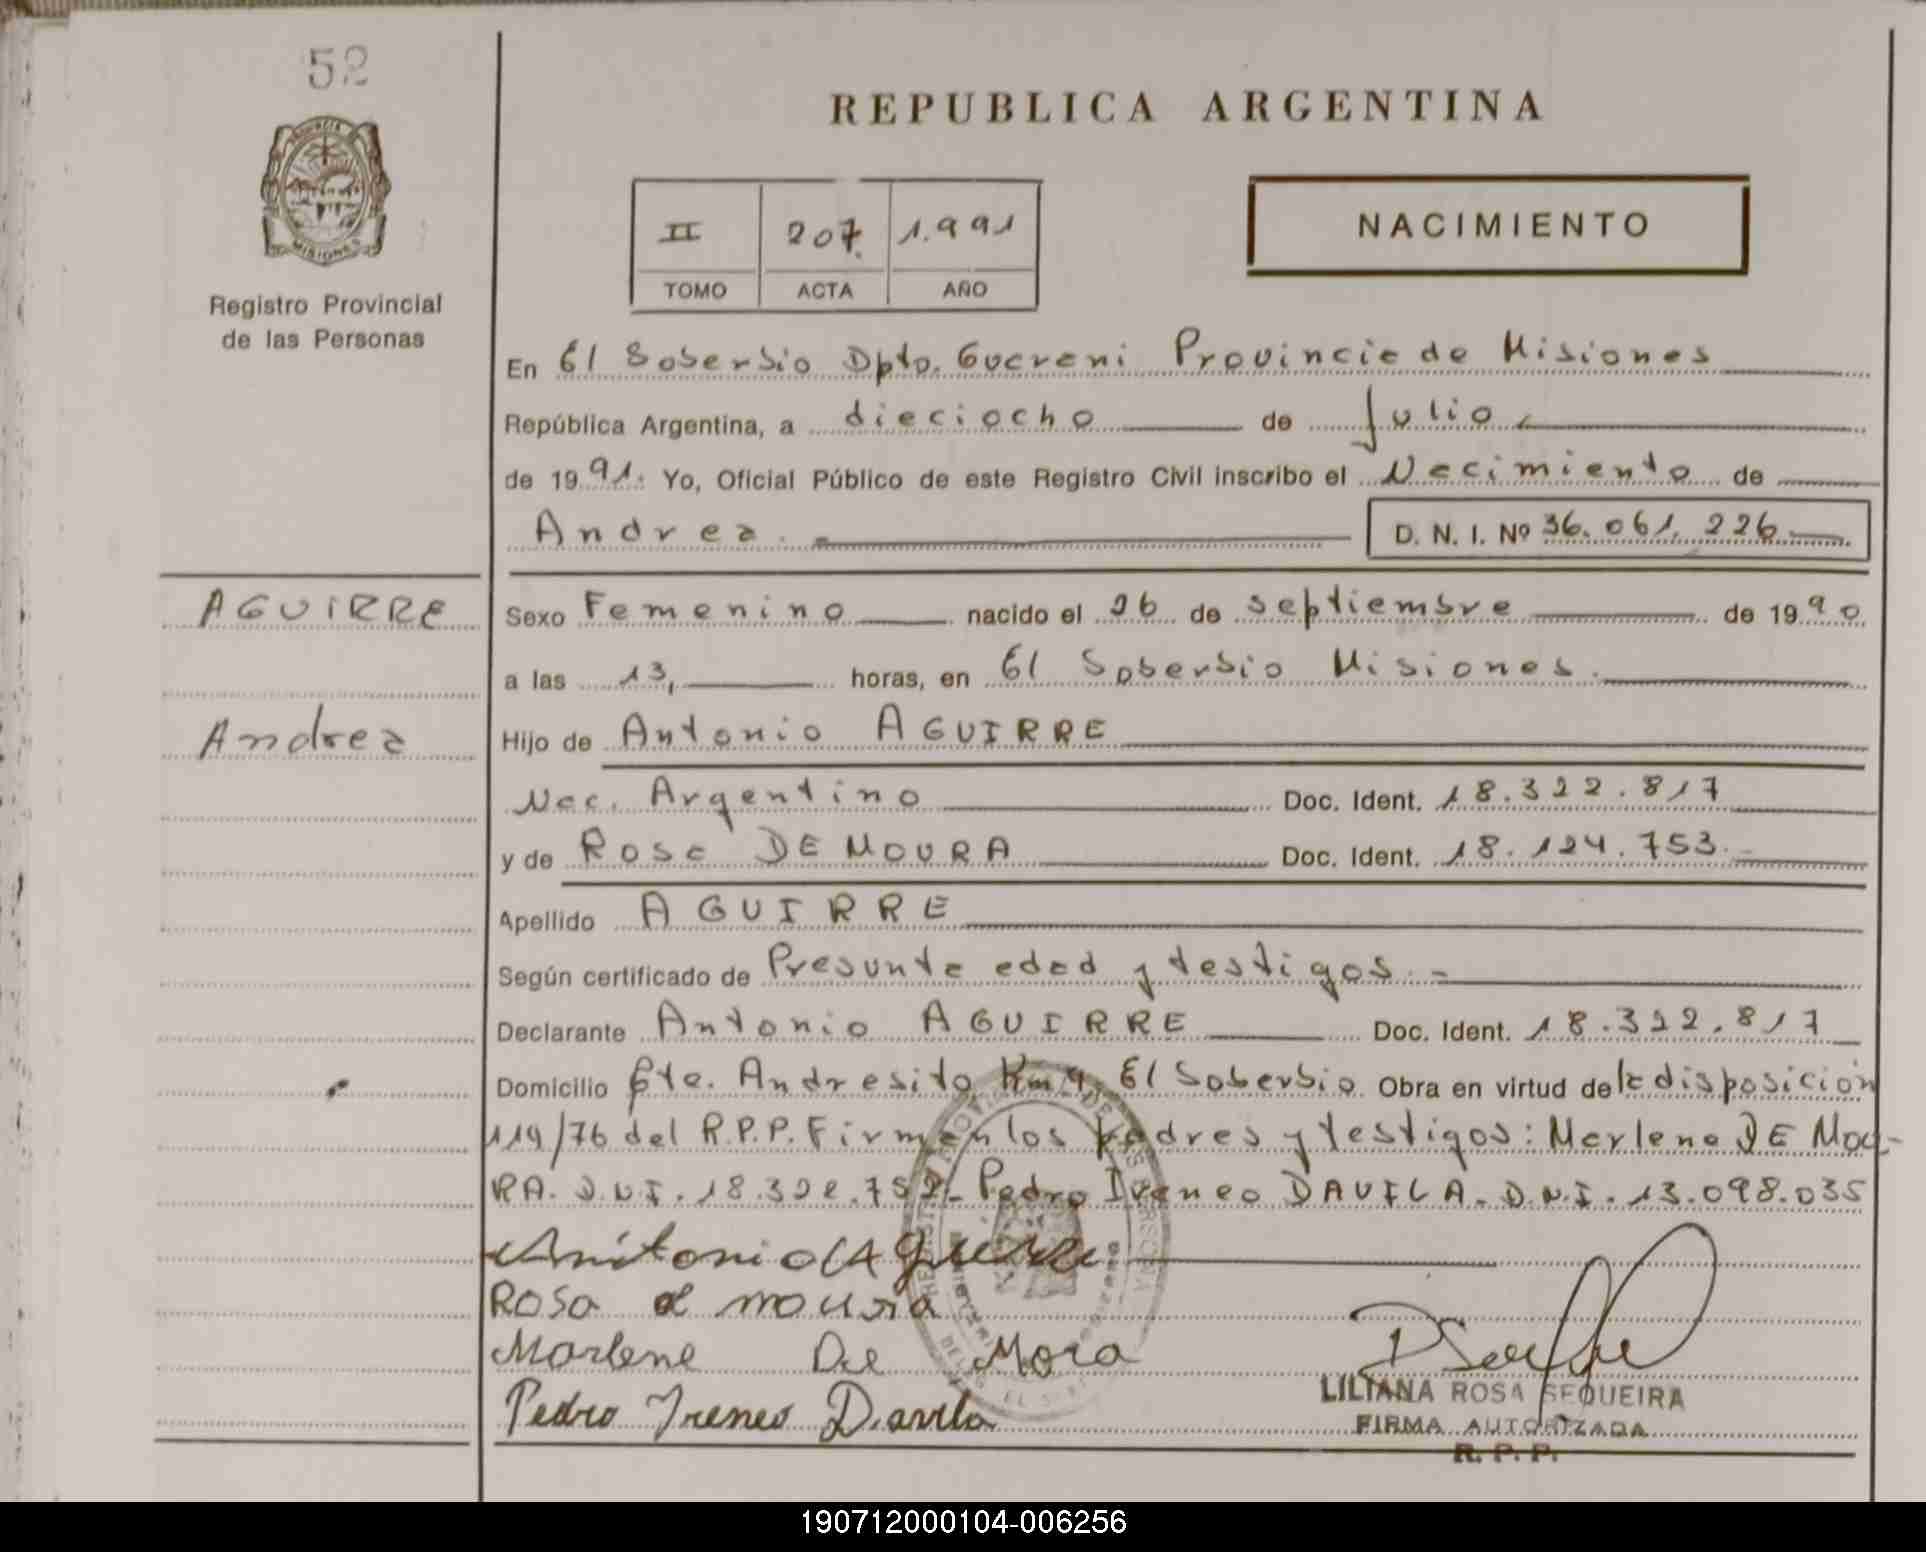 52
REPUBLICA ARGENTINA
MISIONES
Registro Provincial
de las Personas
II 207. 1.991
TOMO ACTA AÑO
NACIMIENTO
En El Soberbio Dpto. Guarani Provincia de Misiones
República Argentina, a dieciocho de Julio,
de 1991. Yo, Oficial Público de este Registro Civil inscribo el Nacimiento de
Andrea. D. N. I. Nº 36.061.226
AGUIRRE
Andrea
Sexo Femenino nacido el 26 de septiembre de 1990
a las 13, horas, en El Soberbio Misiones.
Hijo de Antonio AGUIRRE
Nac. Argentino Doc. Ident. 18.322.817
y de Rosa DE MOURA Doc. Ident. 18.124.753.
Apellido AGUIRRE
Según certificado de Presunta edad y testigos.-
Declarante Antonio AGUIRRE Doc. Ident. 18.322.817
Domicilio Cte. Andresito Km 9, El Soberbio. Obra en virtud de la disposición
119/76 del R.P.P. Firman los padres y testigos: Marlene DE MOU-
RA. D.N.I. 18.322.752- Pedro Ireneo DAVILA. D.N.I. 13.098.035
Anitonio Aguirre
Rosa de moura
Marlene De Mora
Pedro Ireneo Davila
LILIANA ROSA SEQUEIRA
FIRMA AUTORIZADA
R. P. P.
190712000104-006256